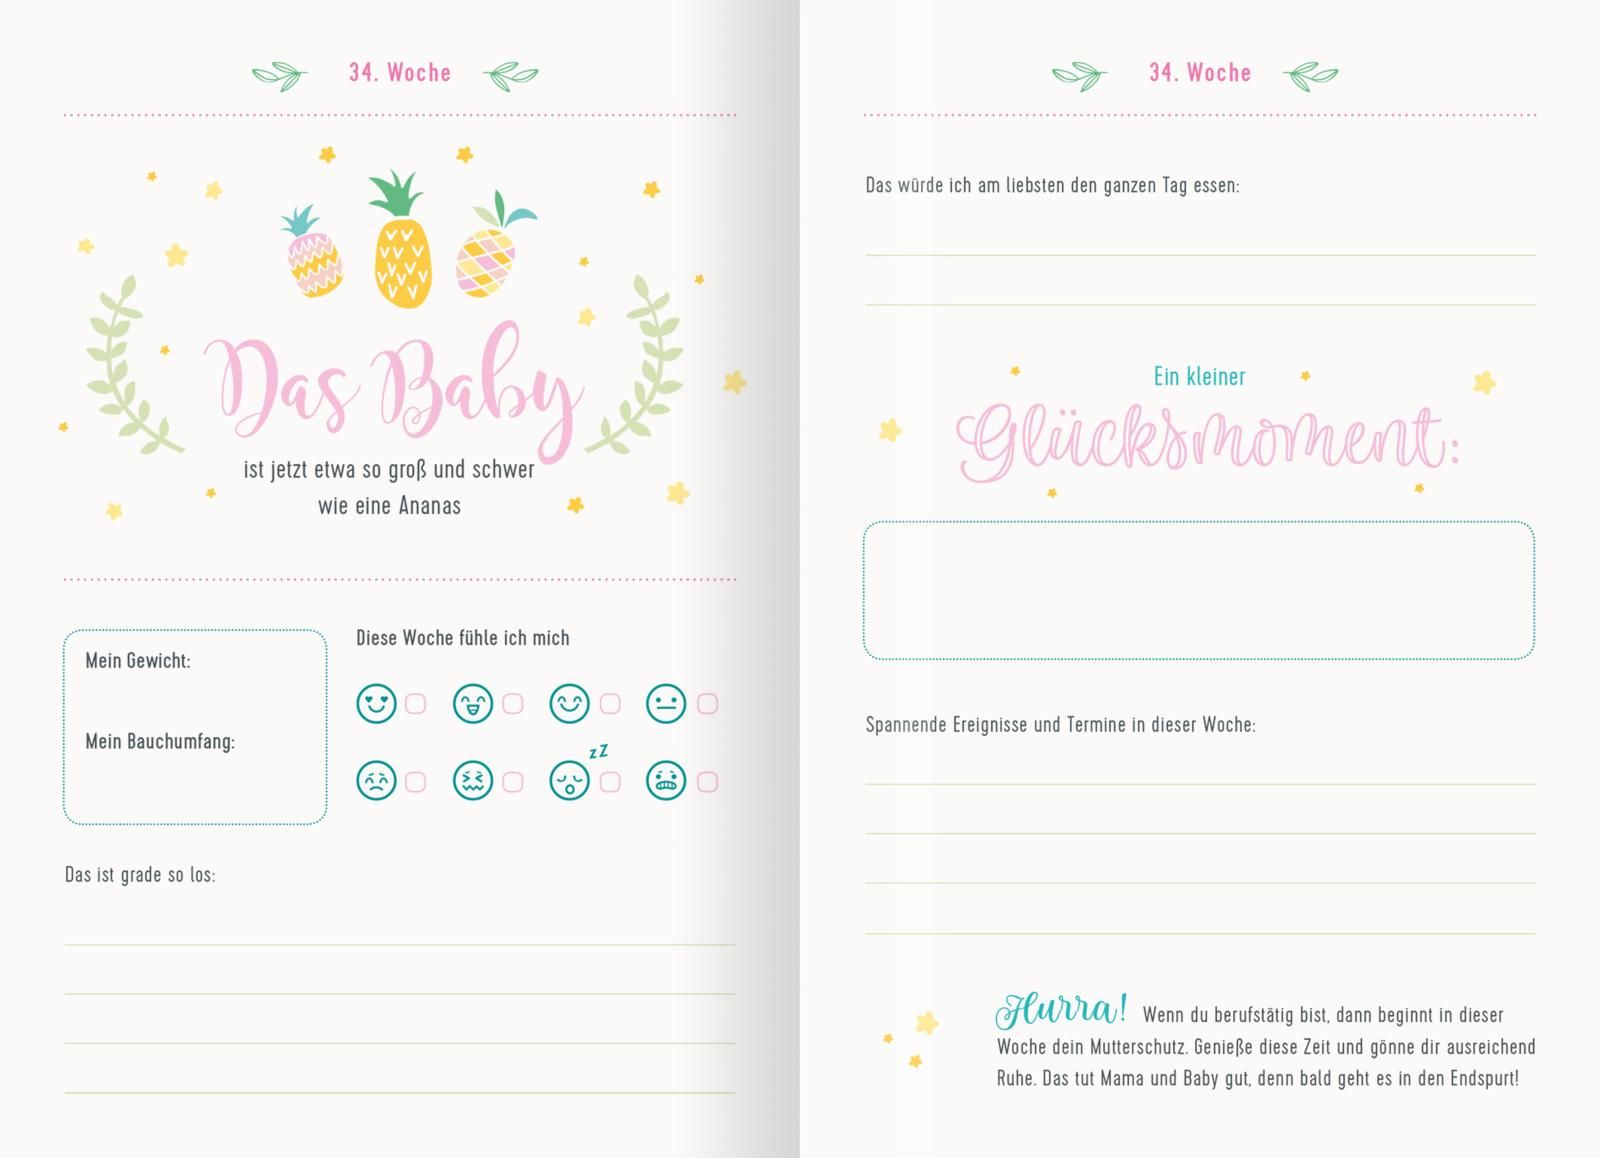 34. Woche
Das Baby
ist jetzt etwa so groß und schwer
wie eine Ananas
Mein Gewicht:
Mein Bauchumfang:
Diese Woche fühle ich mich
zZ
Das ist grade so los:
34. Woche
Das würde ich am liebsten den ganzen Tag essen:
Ein kleiner
Glücksmoment:
Spannende Ereignisse und Termine in dieser Woche:
Hurra! Wenn du berufstätig bist, dann beginnt in dieser
Woche dein Mutterschutz. Genieße diese Zeit und gönne dir ausreichend
Ruhe. Das tut Mama und Baby gut, denn bald geht es in den Endspurt!